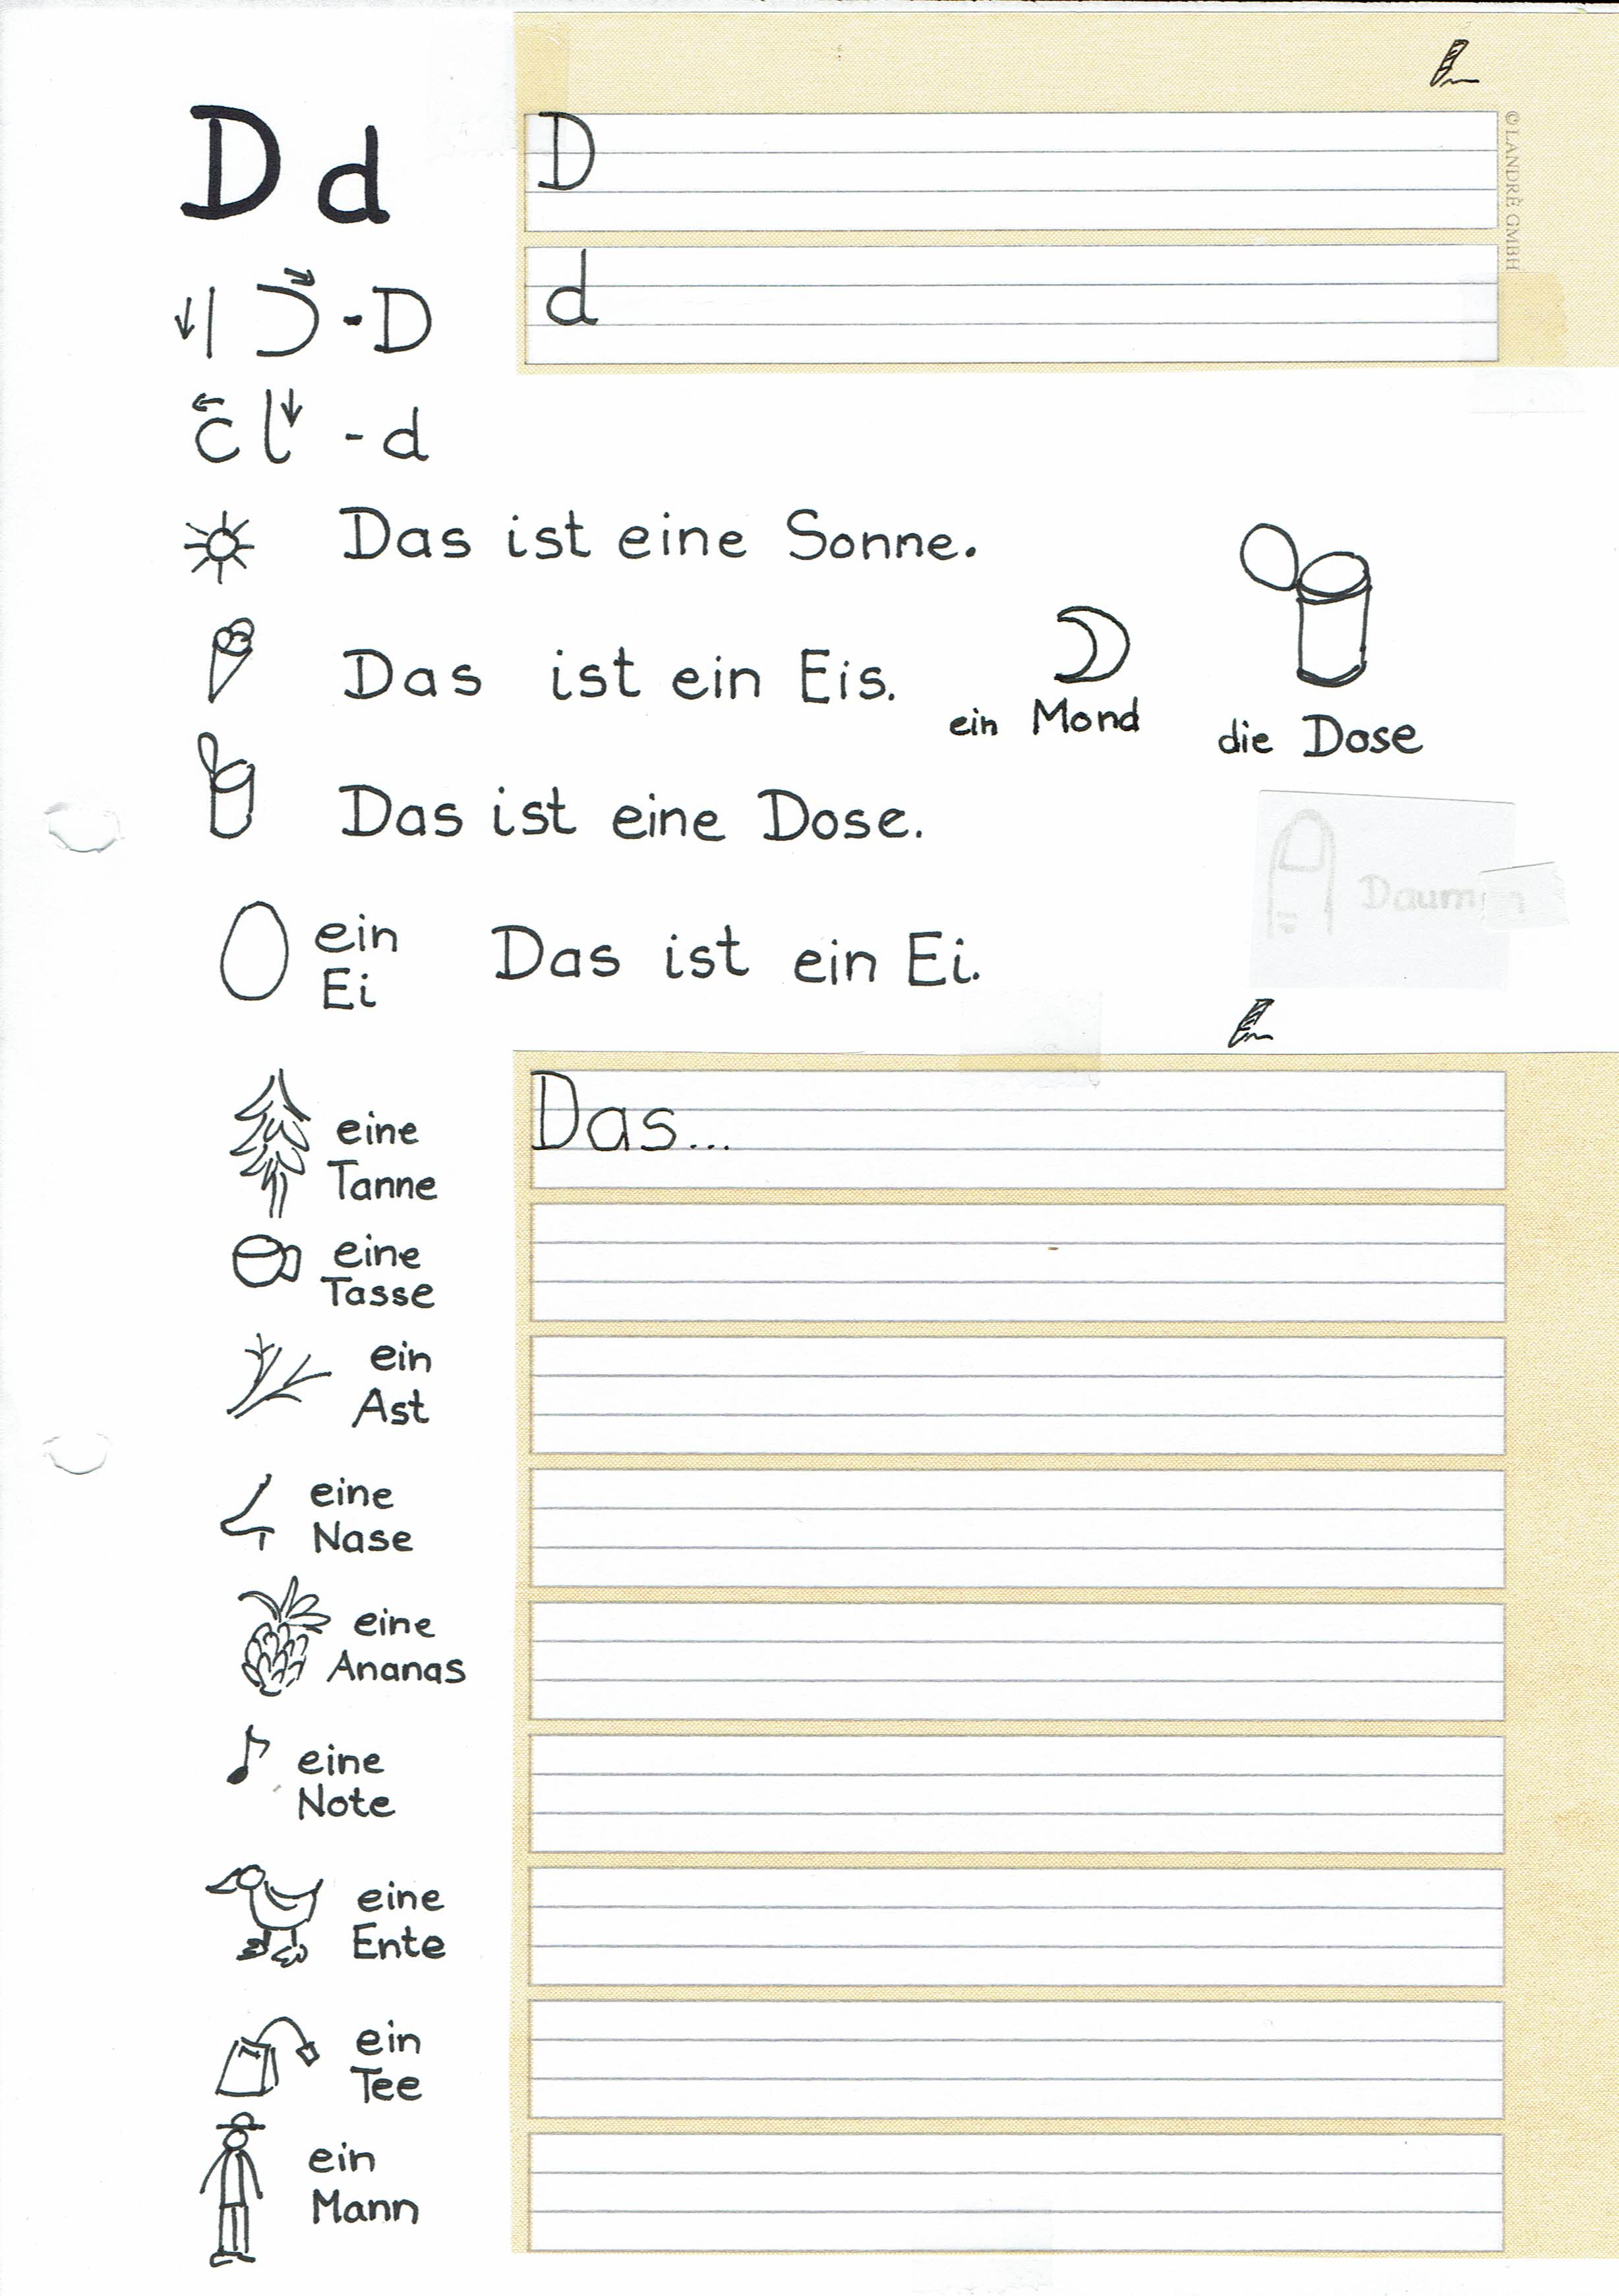 D d
D
©LANDRÉ GMBH
d
- D
c l - d
Das ist eine Sonne.
Das ist ein Eis.
ein Mond
die Dose
Das ist eine Dose.
Daumen
ein
Ei
Das ist ein Ei.
eine
Tanne
Das...
eine
Tasse
ein
Ast
eine
Nase
eine
Ananas
eine
Note
eine
Ente
ein
Tee
ein
Mann